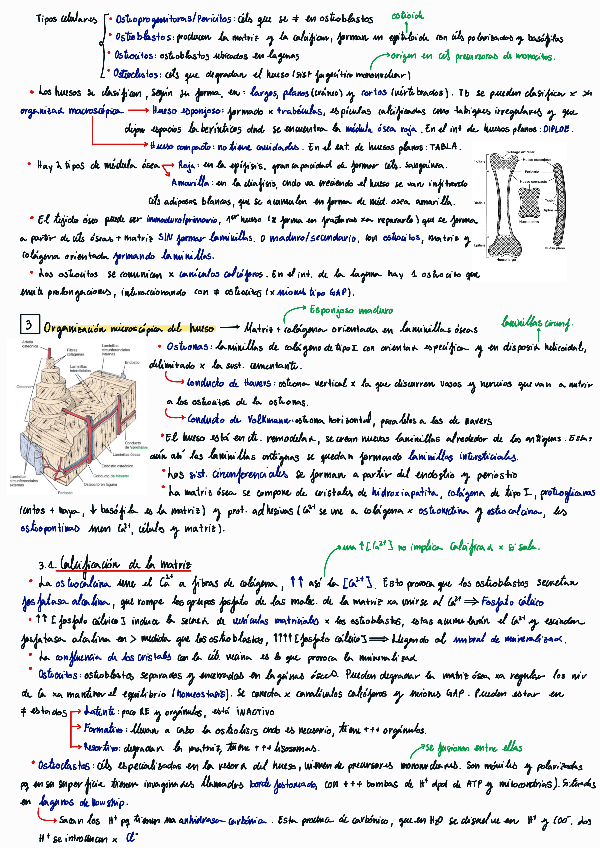 Tipos celulares
• Osteoprogenitoras/Pericitos: céls que se ≠ en osteoblastos
osteoide
• Osteoblastos: producen la matriz y la calcifican, forman en epitelioide con céls polarizadas y basófilas
• Osteocitos: osteoblastos ubicados en lagunas
origen en céls precursoras de monocitos.
• Osteoclastos: céls que degradan el hueso (sist fagocítico mononuclear)
• Los huesos se clasifican, según su forma, en: largos, planos (cráneo) y cortos (vértebrados). Tb se pueden clasificar x su
organizad macroscópica → Hueso esponjoso: formado x trabéculas, espículas calcificadas como tabiques irregulares y que
dejan espacios laberínticos dnd se encuentra la médula ósea roja. En el int de huesos planos: DIPLOE.
→ Hueso compacto: no tiene cavidades. En el ext. de huesos planos: TABLA.
• Hay 2 tipos de médula ósea → Roja: en la epífisis, gran capacidad de formar céls. sanguínea.
→ Amarilla: en la diáfisis, cndo va creciendo el hueso se van infiltrando
céls adiposas blancas, que se acumulan en forma de méd. osea amarilla.
• El tejido óseo puede ser inmaduro/primario, 1er hueso (se forma en fracturas xa repararlo) que se forma
a partir de céls óseas + matriz SIN formar laminillas. O maduro/secundario, con osteocitos, matriz y
colágeno orientada formando laminillas.
• Los osteocitos se comunican x canículos calcóforos. En el int. de la laguna hay 1 osteocito que
emite prolongaciones, interaccionando con ≠ osteocitos (x uniones tipo GAP).
Esponjoso maduro
3 Organización microscópica del hueso → Matriz + colágeno orientada en laminillas óseas
laminillas circunf.
• Osteonas: laminillas de colágeno de tipo I con orientac específica y en disposic helicoidal,
delimitado x la sust. cementante.
→ Conducto de Havers: osteona vertical x la que discurren vasos y nervios que van a nutrir
a los osteocitos de la osteonas.
→ Conducto de Volkmann: osteona horizontal, paralelos a los de Havers
• El hueso está en cte. remodelac, se crean nuevas laminillas alrededor de las antiguas. Estas
aún así las laminillas antiguas se quedan formando laminillas intersticiales.
• Los sist. circunferenciales se forman a partir del endostio y periostio
• La matriz ósea se compone de cristales de hidroxiapatita, colágeno de tipo I, proteoglicanos
(cntos + haya, ↓ basófila es la matriz) y prot. adhesivas (Ca²⁺ se une a colágeno x osteonectina y osteocalcina, las
osteopontinas unen Ca²⁺, células y matriz).
3.1. Calcificación de la matriz
una ↑[Ca²⁺] no implica Calcificac x si sola.
• La osteocalcina une el Ca²⁺ a fibras de colágeno, ↑↑ así la [Ca²⁺]. Esto provoca que los osteoblastos secretan
fosfatasa alcalina, que rompe los grupos fosfato de las moléc. de la matriz xa unirse al Ca²⁺ ⟹ Fosfato cálcico
• ↑↑ [fosfato cálcico] induce la secrec de vesículas matriciales x los osteoblastos, estas acumularán el Ca²⁺ y escinden
fosfatasa alcalina en > medida que los osteoblastos, ↑↑↑↑[fosfato cálcico] ⟹ Llegando al umbral de mineralizac.
• La confluencia de los cristales con la cél. vecina es lo que provoca la mineralizac
• Osteocitos: osteoblastos separados y encerrados en lagunas óseas. Pueden degradar la matriz ósea xa regular los niv
de Ca xa mantener el equilibrio (homeostasis). Se conecta x canalículos calcóforos y uniones GAP. Pueden estar en
≠ estados → Latente: poco RE y orgánulos, está INACTIVO
→ Formativo: llevan a cabo la osteolisis cndo es necesario, tiene +++ orgánulos.
→ Resortivo: degradan la matriz, tiene +++ lisosomas.
se fusionan entre ellas
• Osteoclastos: céls especializadas en la resorc del hueso, vienen de precursores mononucleares. Son móviles y polarizados
pq en su superficie tienen invaginacs llamadas borde festoneado, con +++ bombas de H⁺ dpd de ATP y mitocondrias). Situadas
en lagunas de Howship.
→ Sacan los H⁺ pq tienen una anhidrasa carbónica. Esta produce ác carbónico, que en H₂O se disuelve en H⁺ y CO₃⁻. Los
H⁺ se introducen x Cl⁻